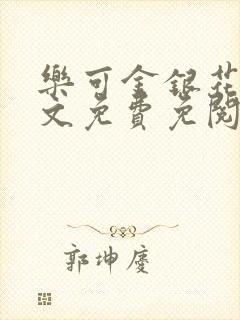 樂可金銀花
文免費免閱
郭坤慶